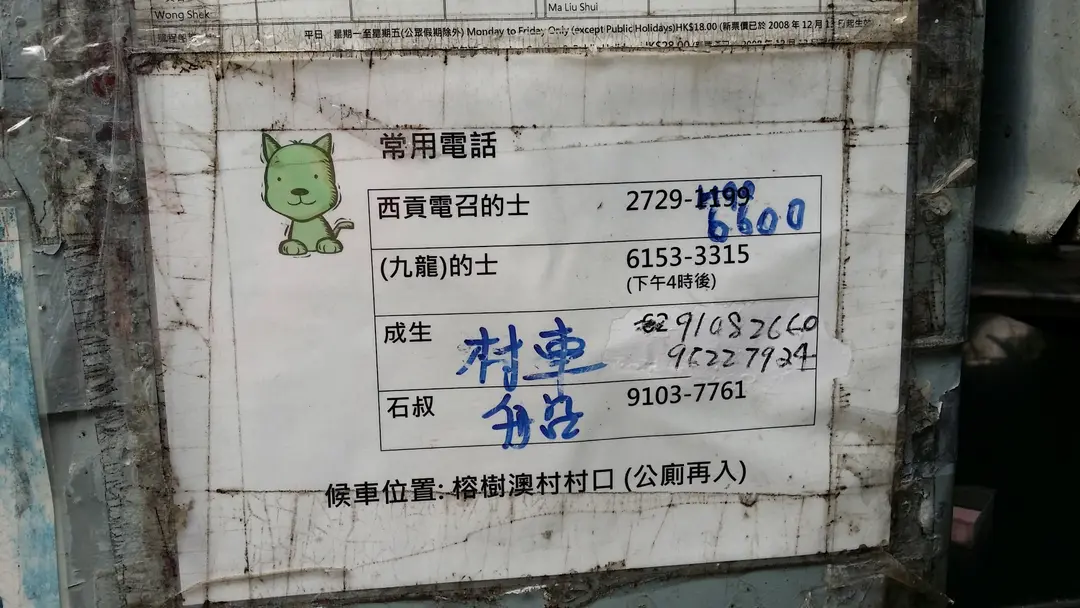 Wong Shek
Ma Liu Shui
平日 星期一至星期五(公眾假期除外) Monday to Friday Only (except Public Holidays)HK$18.00 (新票價已於 2008 年 12 月
常用電話
西貢電召的士 2729-1199
6600
(九龍)的士 6153-3315
(下午4時後)
成生 村車
石叔 9103-7761
候車位置: 榕樹澳村村口 (公廁再入)